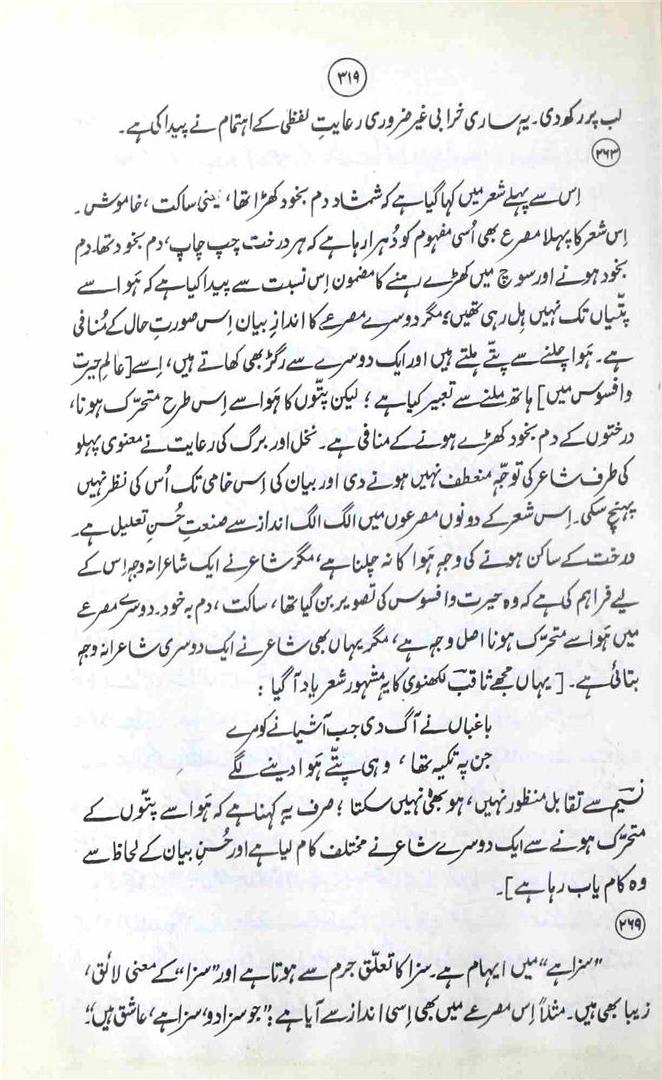 ۳۱۹
لب پر رکھ دی۔ یہ ساری خرابی غیر ضروری رعایتِ لفظی کے اہتمام نے پیدا کی ہے۔
۲۶۳
اِس سے پہلے شعر میں کہا گیا ہے کہ شمشاد دم بخود کھڑا تھا، یعنی ساکت، خاموش۔
اِس شعر کا پہلا مصرع بھی اُسی مفہوم کو دُہرا رہا ہے کہ ہر درخت چپ چاپ، دم بخود تھا۔ دم
بخود ہونے اور سوچ میں کھڑے رہنے کا مضمون اِس نسبت سے پیدا کیا ہے کہ ہَوا سے
پتّیاں تک نہیں ہِل رہی تھیں؛ مگر دوسرے مصرعے کا اندازِ بیان اِس صورتِ حال کے مُنافی
ہے۔ ہَوا چلنے سے پتّے ہلتے ہیں اور ایک دوسرے سے رگڑ بھی کھاتے ہیں، اِسے [عالمِ حیرت
و افسوس میں] ہاتھ ملنے سے تعبیر کیا ہے؛ لیکن پتّوں کا ہَوا سے اِس طرح متحرّک ہونا،
درختوں کے دم بخود کھڑے ہونے کے منافی ہے۔ نخل اور برگ کی رعایت نے معنوی پہلو
کی طرف شاعر کی توجّہ منعطف نہیں ہونے دی اور بیان کی اِس خامی تک اُس کی نظر نہیں
پہنچ سکی۔ اِس شعر کے دونوں مصرعوں میں الگ الگ انداز سے صنعتِ حُسنِ تعلیل ہے۔
درخت کے ساکن ہونے کی وجہ ہَوا کا نہ چلنا ہے، مگر شاعر نے ایک شاعرانہ وجہ اِس کے
لیے فراہم کی ہے کہ وہ حیرت و افسوس کی تصویر بن گیا تھا، ساکت، دم بہ خود۔ دوسرے مصرعے
میں ہَوا سے متحرّک ہونا اصل وجہ ہے، مگر یہاں بھی شاعر نے ایک دوسری شاعرانہ وجہ
بتائی ہے۔ [یہاں مجھے ثاقبؔ لکھنوی کا یہ مشہور شعر یاد آ گیا:
باغباں نے آگ دی جب آشیانے کو مرے
جن پہ تکیہ تھا، وہی پتّے ہَوا دینے لگے
نسیمؔ سے تقابل منظور نہیں، ہو بھی نہیں سکتا؛ صرف یہ کہنا ہے کہ ہَوا سے پتّوں کے
متحرّک ہونے سے ایک دوسرے شاعر نے مختلف کام لیا ہے اور حُسنِ بیان کے لحاظ سے
وہ کام یاب رہا ہے]۔
۲۶۹
”سزا ہے“ میں ایہام ہے۔ سزا کا تعلّق جرم سے ہوتا ہے اور ”سزا“ کے معنی لائق،
زیبا بھی ہیں۔ مثلاً اِس مصرعے میں بھی اِسی انداز سے آیا ہے: ”جو سزا دو، سزا ہے، عاشق ہیں“۔